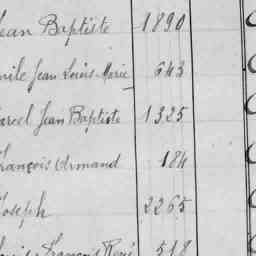 Jean Baptiste 1890
Emile Jean Louis Marie 643
Marcel Jean Baptiste 1325
François Armand 184
Joseph 2265
Louis François René 518